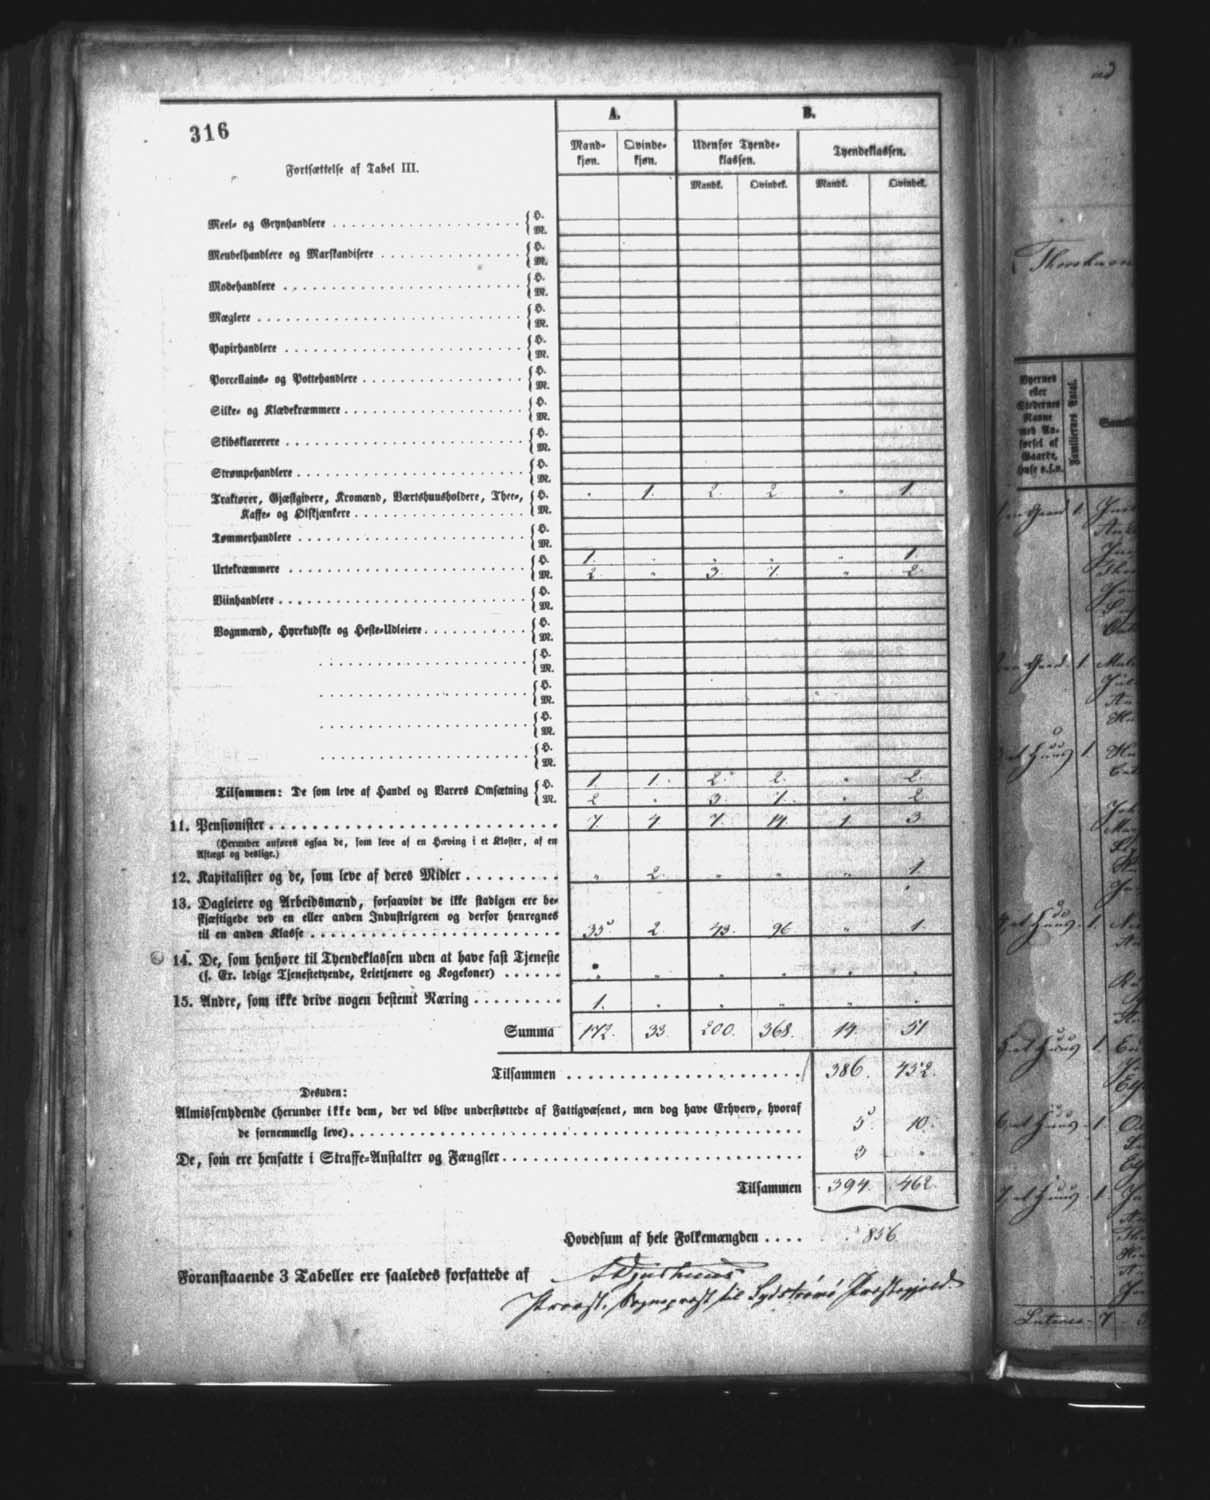 316
Fortsættelse af Tabel III.
A. B.
Mandkjøn. Qvindekjøn. Udenfor Tyendeklassen. Tyendeklassen.
Mandk. Qvindek. Mandk. Qvindek.
Meel- og Grynhandlere H. M.
Meubelhandlere og Marskandisere H. M.
Modehandlere H. M.
Mæglere H. M.
Papirhandlere H. M.
Porcellains- og Pottehandlere H. M.
Silke- og Klædekræmmere H. M.
Skibsklarerere H. M.
Strømpehandlere H. M.
Traktører, Gjæstgivere, Kromænd, Værtshuusholdere, Thee-, H. " 1. 2. 2 " 1.
Kaffe- og Ølskjænkere M.
Tømmerhandlere H. M.
Urtekræmmere H. 1. " " " " 1.
M. 2. " 3. 7. " 2.
Viinhandlere H. M.
Vognmænd, Hyrekudske og Heste-Udleiere H. M.
H. M.
H. M.
H. M.
H. M.
Tilsammen: De som leve af Handel og Varers Omsætning H. 1. 1. 2. 2. " 2.
M. 2 " 3. 7. " 2.
11. Pensionister 7. 4 7. 14. 1 3
(Herunder anføres ogsaa de, som leve af en Hæving i et Kloster, af en
Aftægt og deslige.)
12. Kapitalister og de, som leve af deres Midler " 2. " " " 1.
13. Dagleiere og Arbeidsmænd, forsaavidt de ikke stadigen ere be-
skjæftigede ved en eller anden Industrigreen og derfor henregnes
til en anden Klasse 35 2 43. 96 " 1.
14. De, som henhøre til Tyendeklassen uden at have fast Tjeneste
(f. Ex. ledige Tjenestetyende, Leietjenere og Kogekoner) " " " " " "
15. Andre, som ikke drive nogen bestemt Næring 1. " " " " "
Summa 172. 33. 200. 368. 14. 51
Tilsammen 386. 452.
Desuden:
Almissenydende (herunder ikke dem, der vel blive understøttede af Fattigvæsenet, men dog have Erhverv, hvoraf
de fornemmelig leve) 5 10.
De, som ere hensatte i Straffe-Anstalter og Fængsler 3 "
Tilsammen 394. 462.
Hovedsum af hele Folkemængden 856
Foranstaaende 3 Tabeller ere saaledes forfattede af
Provst, Sognepræst til Sydstrømø Præstegjeld.
Byernes
eller
Stedernes
Navne
med An-
førsel af
Gaarde,
Huse o.s.v.
Familiernes Antal.